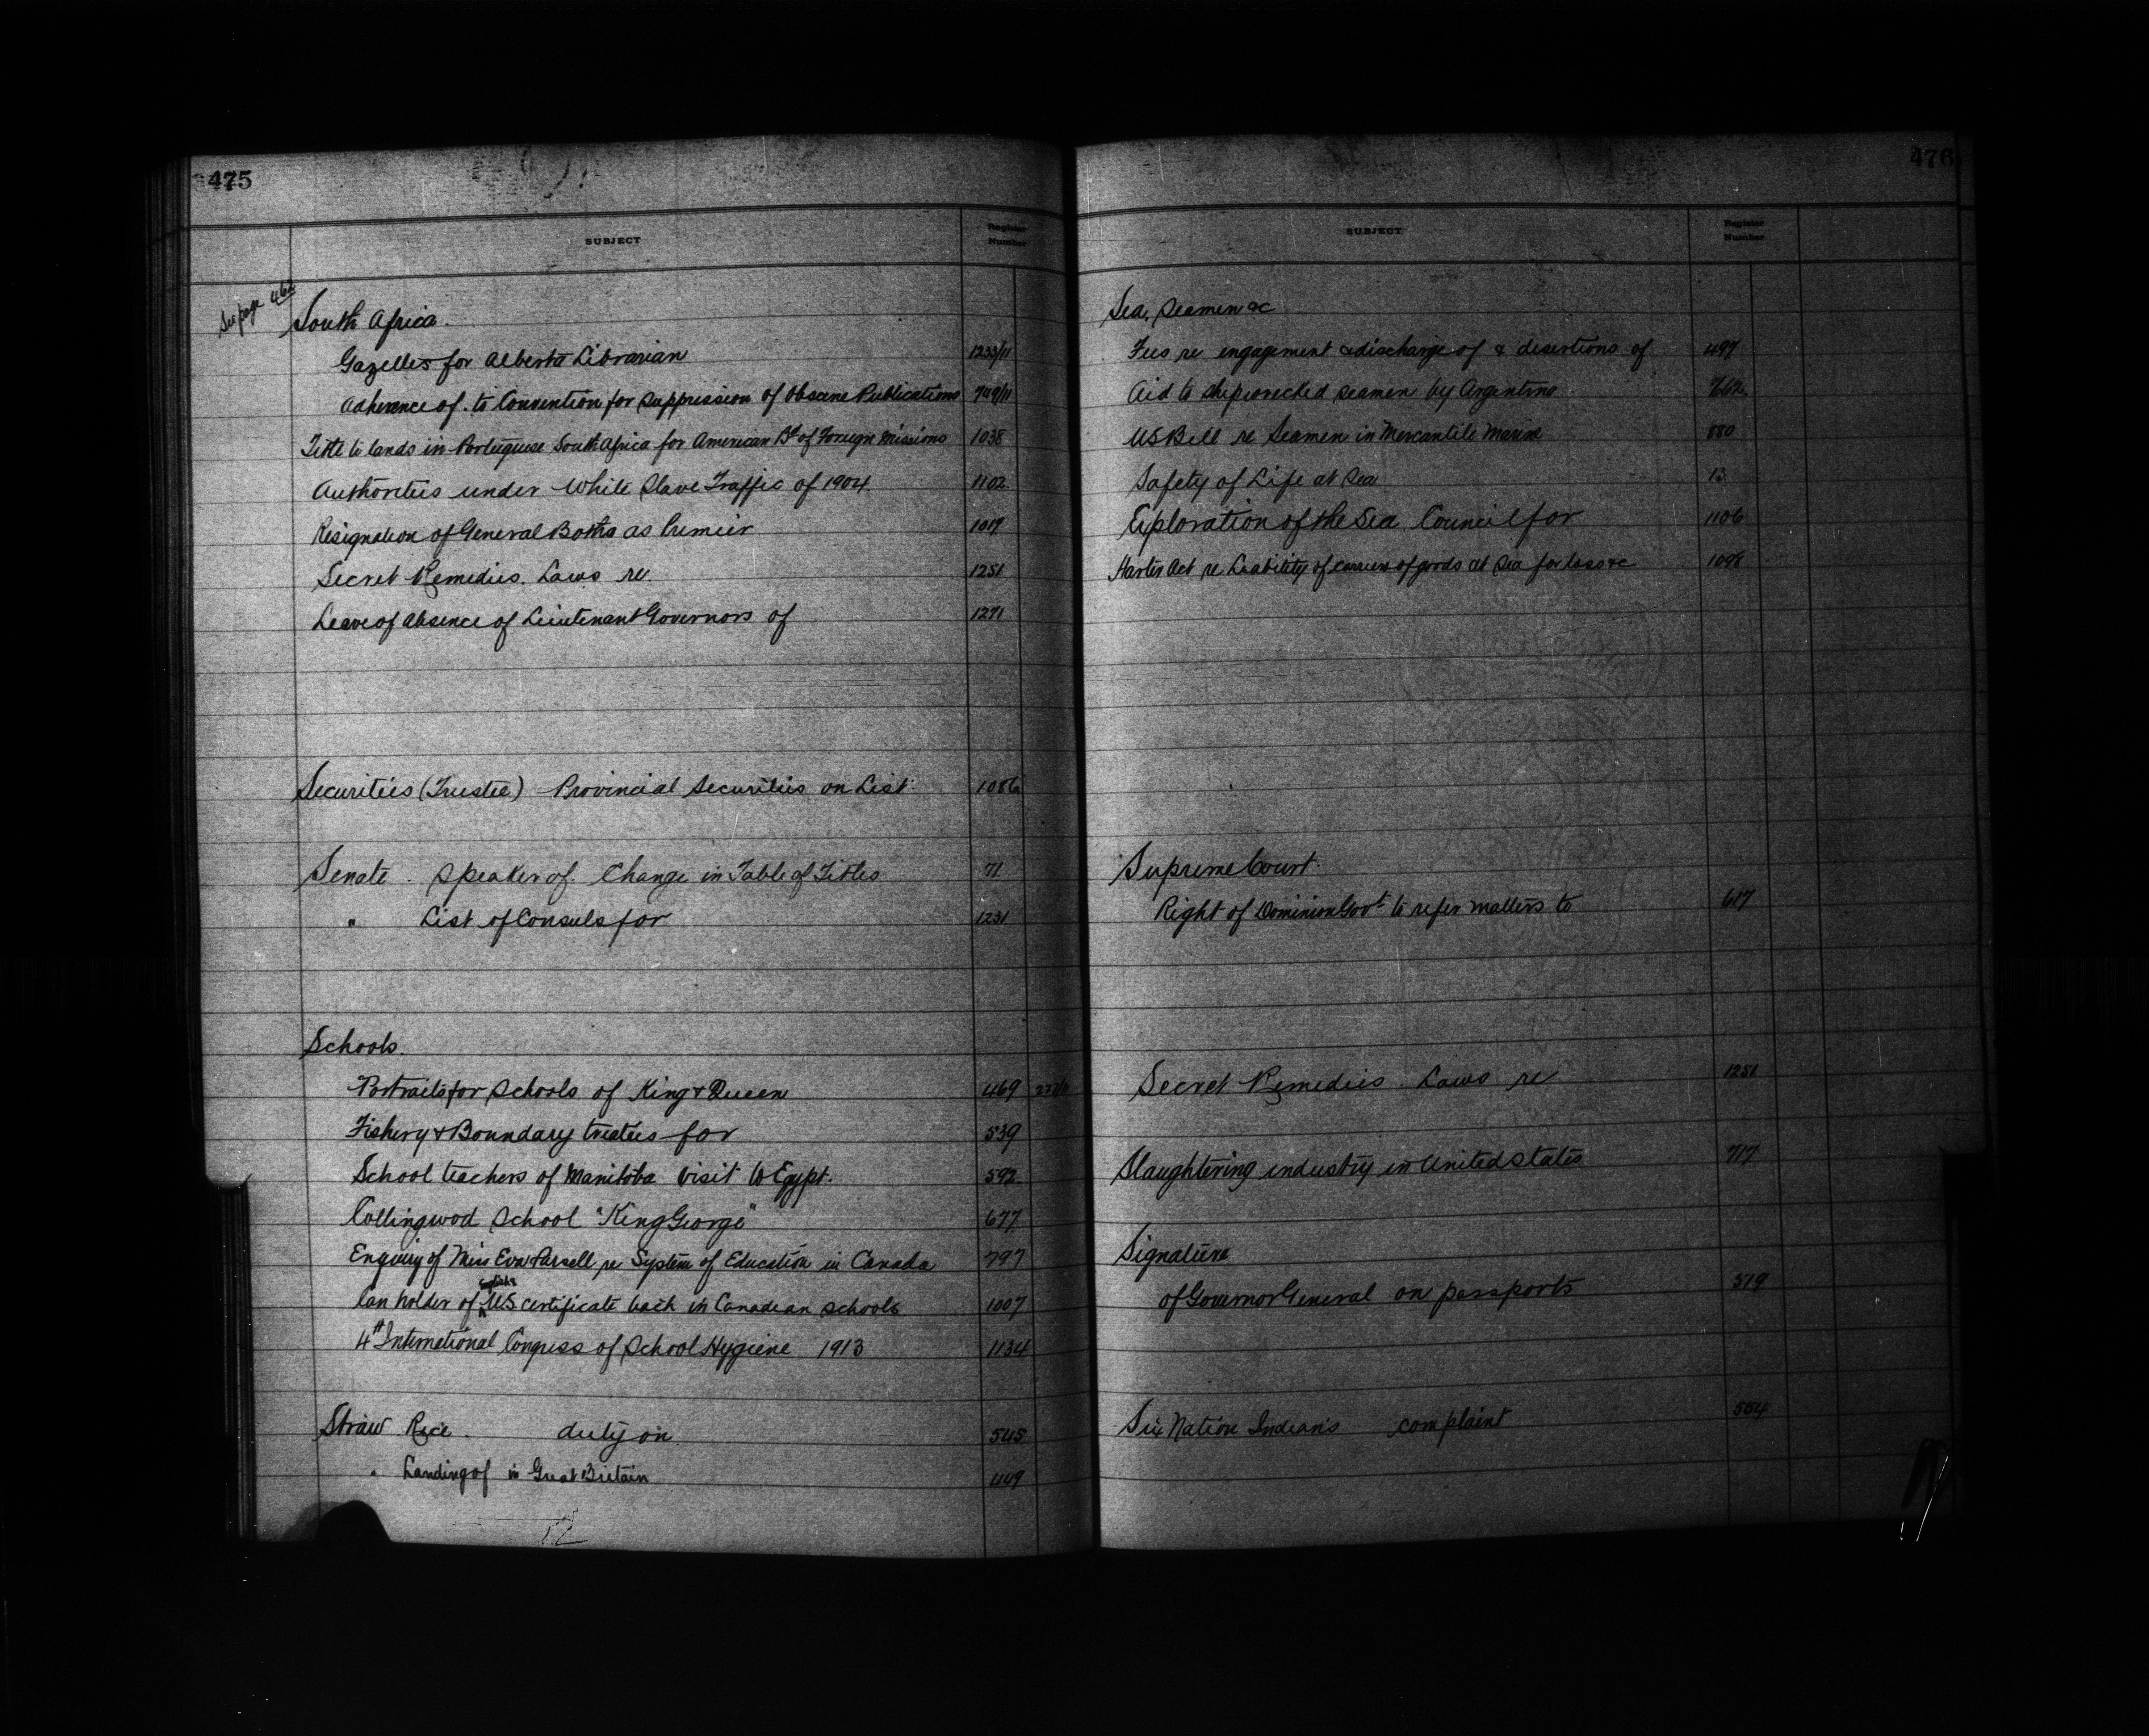 475
SUBJECT
Register
Number
See page 462
South Africa.
Gazettes for Alberta Librarian 1233/11
Adherence of. to Convention for Suppression of Obscene Publications 749/11
Title to lands in Portuguese South Africa for American Bd of Foreign Missions 1038
Authorities under White Slave Traffic of 1904. 1102
Resignation of General Botha as Premier 1017
Secret Remedies. Laws re. 1251
Leave of absence of Lieutenant Governors of 1271
Securities (Trustee) Provincial Securities on List. 1086
Senate. Speaker of. Change in Table of Titles 71
" List of Consuls for 1231
Schools.
Portraits for Schools of King & Queen 469
Fishery & Boundary treaties for 539
School teachers of Manitoba visit to Egypt. 592
Collingwood School "King George" 677
Enquiry of Miss Eva Parsell re System of Education in Canada 797
English &
Can holder of U.S. certificate teach in Canadian Schools 1007
4th International Congress of School Hygiene 1913 1134
Straw Rice. duty on 545
" Landing of in Great Britain 1149
476
SUBJECT
Register
Number
Sea, Seamen &c
Fees re engagement & discharge of & desertions of 497
Aid to shipwrecked seamen by Argentine 762
US Bill re Seamen in Mercantile Marine 880
Safety of Life at Sea 13
Exploration of the Sea Council for 1106
Harter Act re Liability of carriers of goods at Sea for loss &c 1098
Supreme Court.
Right of Dominion Govt to refer matters to 617
Secret Remedies. Laws re 1251
Slaughtering industry in United States 717
Signature
of Governor General on passports 519
Six Nation Indians complaint 554